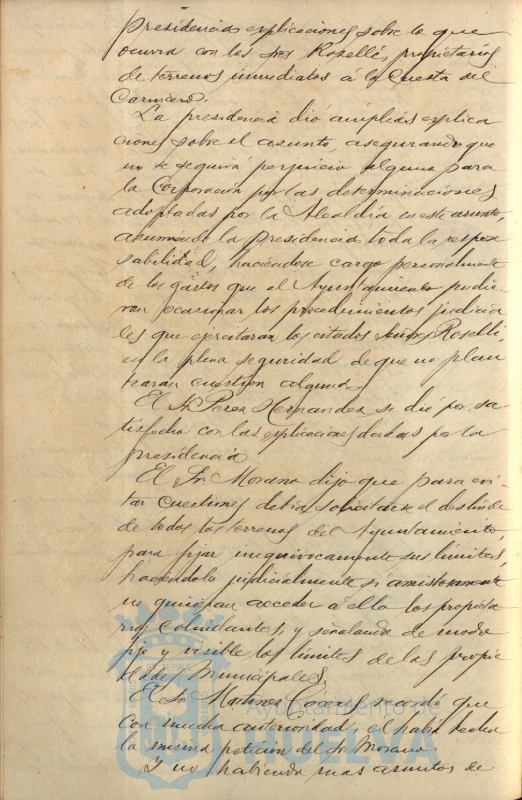 presidencia explicaciones sobre lo que
ocurria con los Sres Roselló, propietarios
de terrenos inmediatos á la Cuesta del
Carnicero.
La presidencia dió amplias explica
ciones sobre el asunto, asegurando que
no se seguirá perjuicio alguno para
la Corporación por las determinaciones
adoptadas por la Alcaldia en este asunto
asumiendo la presidencia toda la respon
sabilidad, haciendose cargo personalmente
de los gastos que al Ayuntamiento pudie
ran ocasionar los procedimientos judicia
les que ejercitaran los citados Señores Roselló,
en la plena seguridad de que no plan
tearan cuestion alguna.
El Sr Perez Hernandez se dió por sa
tisfecho con las explicaciones dadas por la
presidencia
El Sr. Morano dijo que para evi
tar cuestiones debia solicitarse el deslinde
de todos los terrenos del Ayuntamiento,
para fijar inequivocamente sus limites,
haciendolo judicialmente si amistosamente
no quisieran acceder á ello los propieta
rios colindantes, y señalando de modo
fijo y visible los limites de las propie
dades municipales.
El Sr Martinez Cáceres recordó que
con mucha anterioridad, el habia hecho
la misma peticion del Sr Morano.
Y no habiendo mas asuntos de
Ayuntamiento de
HUELVA